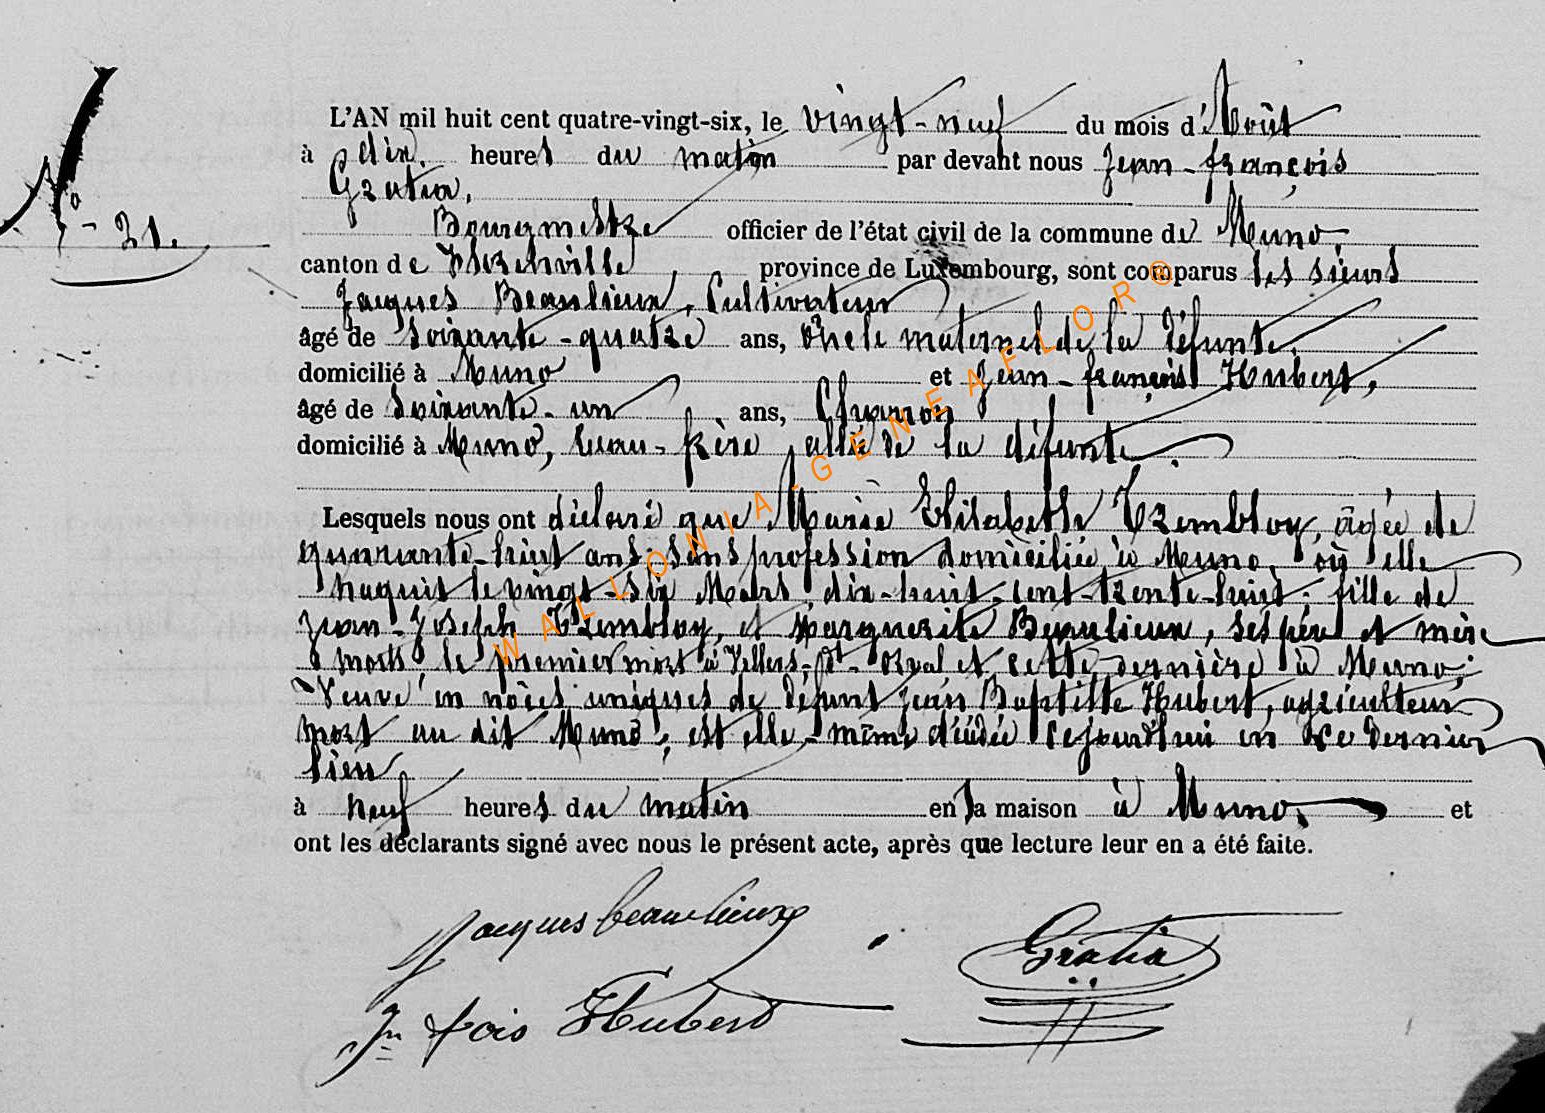 L'AN mil huit cent quatre-vingt-six, le vingt-neuf du mois d'Août
à dix heures du matin par devant nous Jean-françois
Gratia,
N° 31.
Bourgmestre officier de l'état civil de la commune de Muno,
canton de Florenville, province de Luxembourg, sont comparus les sieurs
Jacques Beaulieux, Cultivateur
âgé de soixante-quatre ans, oncle maternel de la défunte,
domicilié à Muno et Jean-françois Hubert,
âgé de soixante-un ans, Charron
domicilié à Muno, beau-frère allié de la défunte.
Lesquels nous ont déclaré que Marie Elisabeth Trembloy, âgée de
quarante-huit ans sans profession domiciliée à Muno, où elle
naquit le vingt-six Mars dix-huit-cent-trente-huit; fille de
Jean-Joseph Trembloy, et Marguerite Beaulieux, ses père et mère
morts le premier mort à Villers-dt-Orval et cette dernière à Muno;
Veuve en nôces uniques de défunt Jean Baptiste Hubert, agriculteur
mort au dit Muno; est elle-même décédée cejourd'hui en ce dernier
lieu
à neuf heures du matin en sa maison à Muno, et
ont les déclarants signé avec nous le présent acte, après que lecture leur en a été faite.
Jacques beaulieux
Gratia
Jn fois Hubert
WALLONIA-GENEAFLOR®